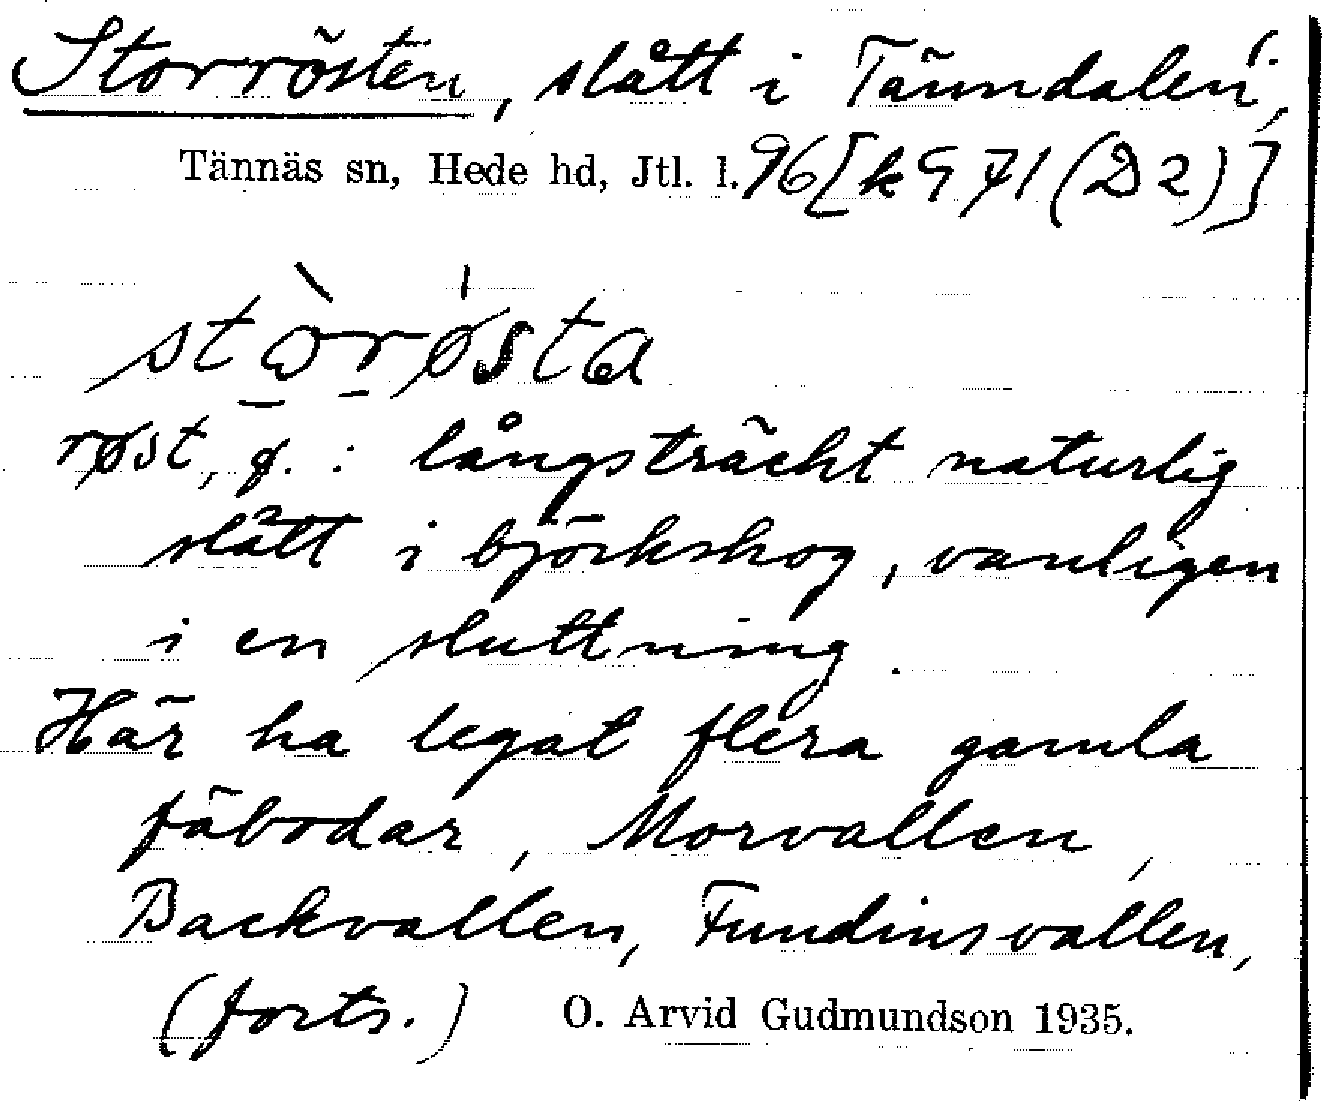 Storrösten, slått i Tänndalen,
Tännäs sn, Hede hd, Jtl. l. 96 [k 971 (D2)]
stòrǿsta
røst, f. : långsträckt naturlig
slått i björkskog, vanligen
i en sluttning.
Här ha legat flera gamla
fäbodar, Morvallen,
Backvallen, Fundinsvallen,
(forts.) O. Arvid Gudmundson 1935.